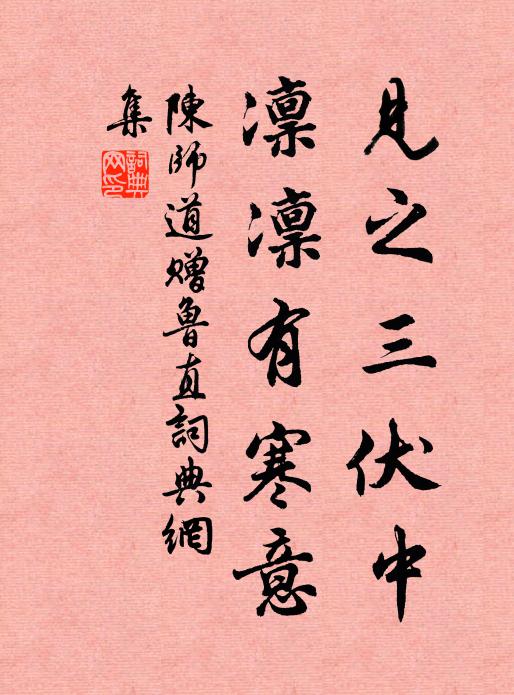 見之三伏中
凜凜有寒意
陳師道贈魯直詞典網
集
詞典網印